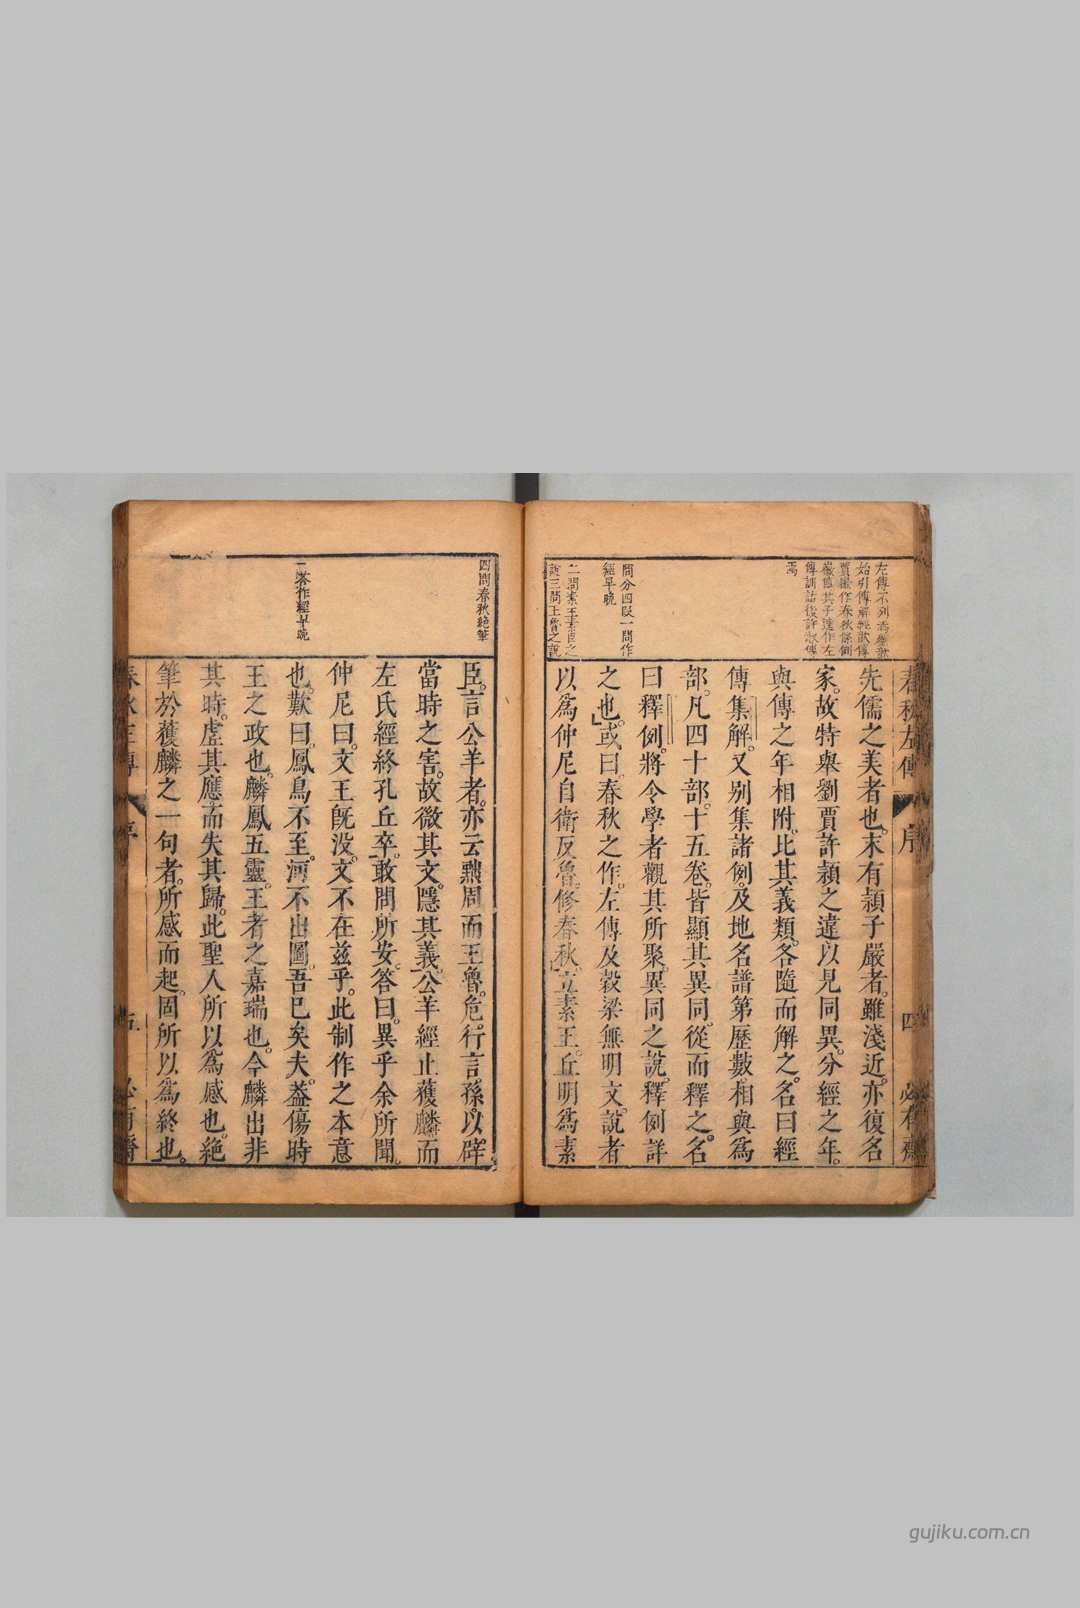 春秋左傳 序 四
左傳不列
始引傳解經
賈徽作春秋條例
徽傳其子逵作左
傳訓詁後許淑傳
焉
問分四段一問作
經早晚
二問素王素臣之
說三問王魯之說
先儒之美者也末有穎子嚴者雖淺近亦復名
家故特舉劉賈許穎之違以見同異分經之年
與傳之年相附比其義類各隨而解之名曰經
傳集解又別集諸例及地名譜第歷數相與爲
部凡四十部十五卷皆顯其異同從而釋之名
曰釋例將令學者觀其所聚異同之說釋例詳
之也或曰春秋之作左傳及穀梁無明文說者
以爲仲尼自衛反魯修春秋立素王丘明爲素
四問春秋絕筆
一荅作經早晚
臣言公羊者亦云黜周而王魯危行言孫以辟
當時之害故微其文隱其義公羊經止獲麟而
左氏經終孔丘卒敢問所安答曰異乎余所聞
仲尼曰文王旣没文不在兹乎此制作之本意
也歎曰鳳鳥不至河不出圖吾已矣夫葢傷時
王之政也麟鳳五靈王者之嘉瑞也今麟出非
其時虛其應而失其歸此聖人所以爲感也絕
筆於獲麟之一句者所感而起固所以爲終也
gujiku.com.cn